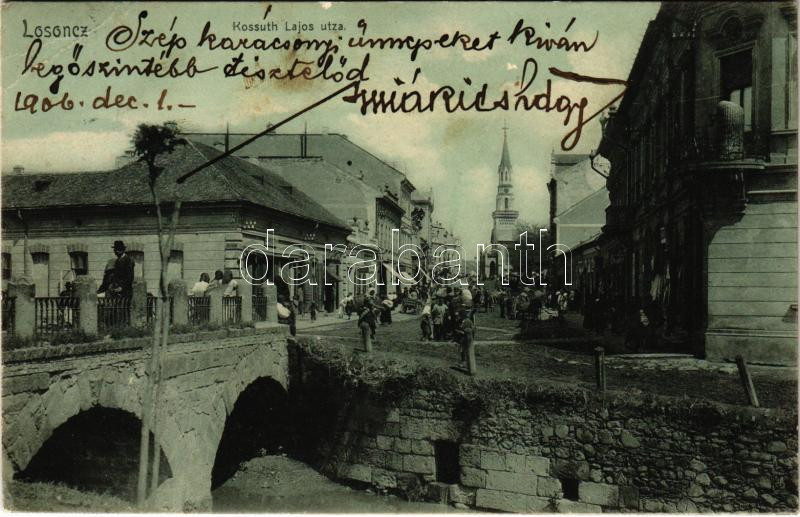 Losoncz
Kossuth Lajos utza.
Szép karácsonyi ünnepeket kiván
legőszintébb tisztelőd
1906. dec. 1.—
darabanth.com